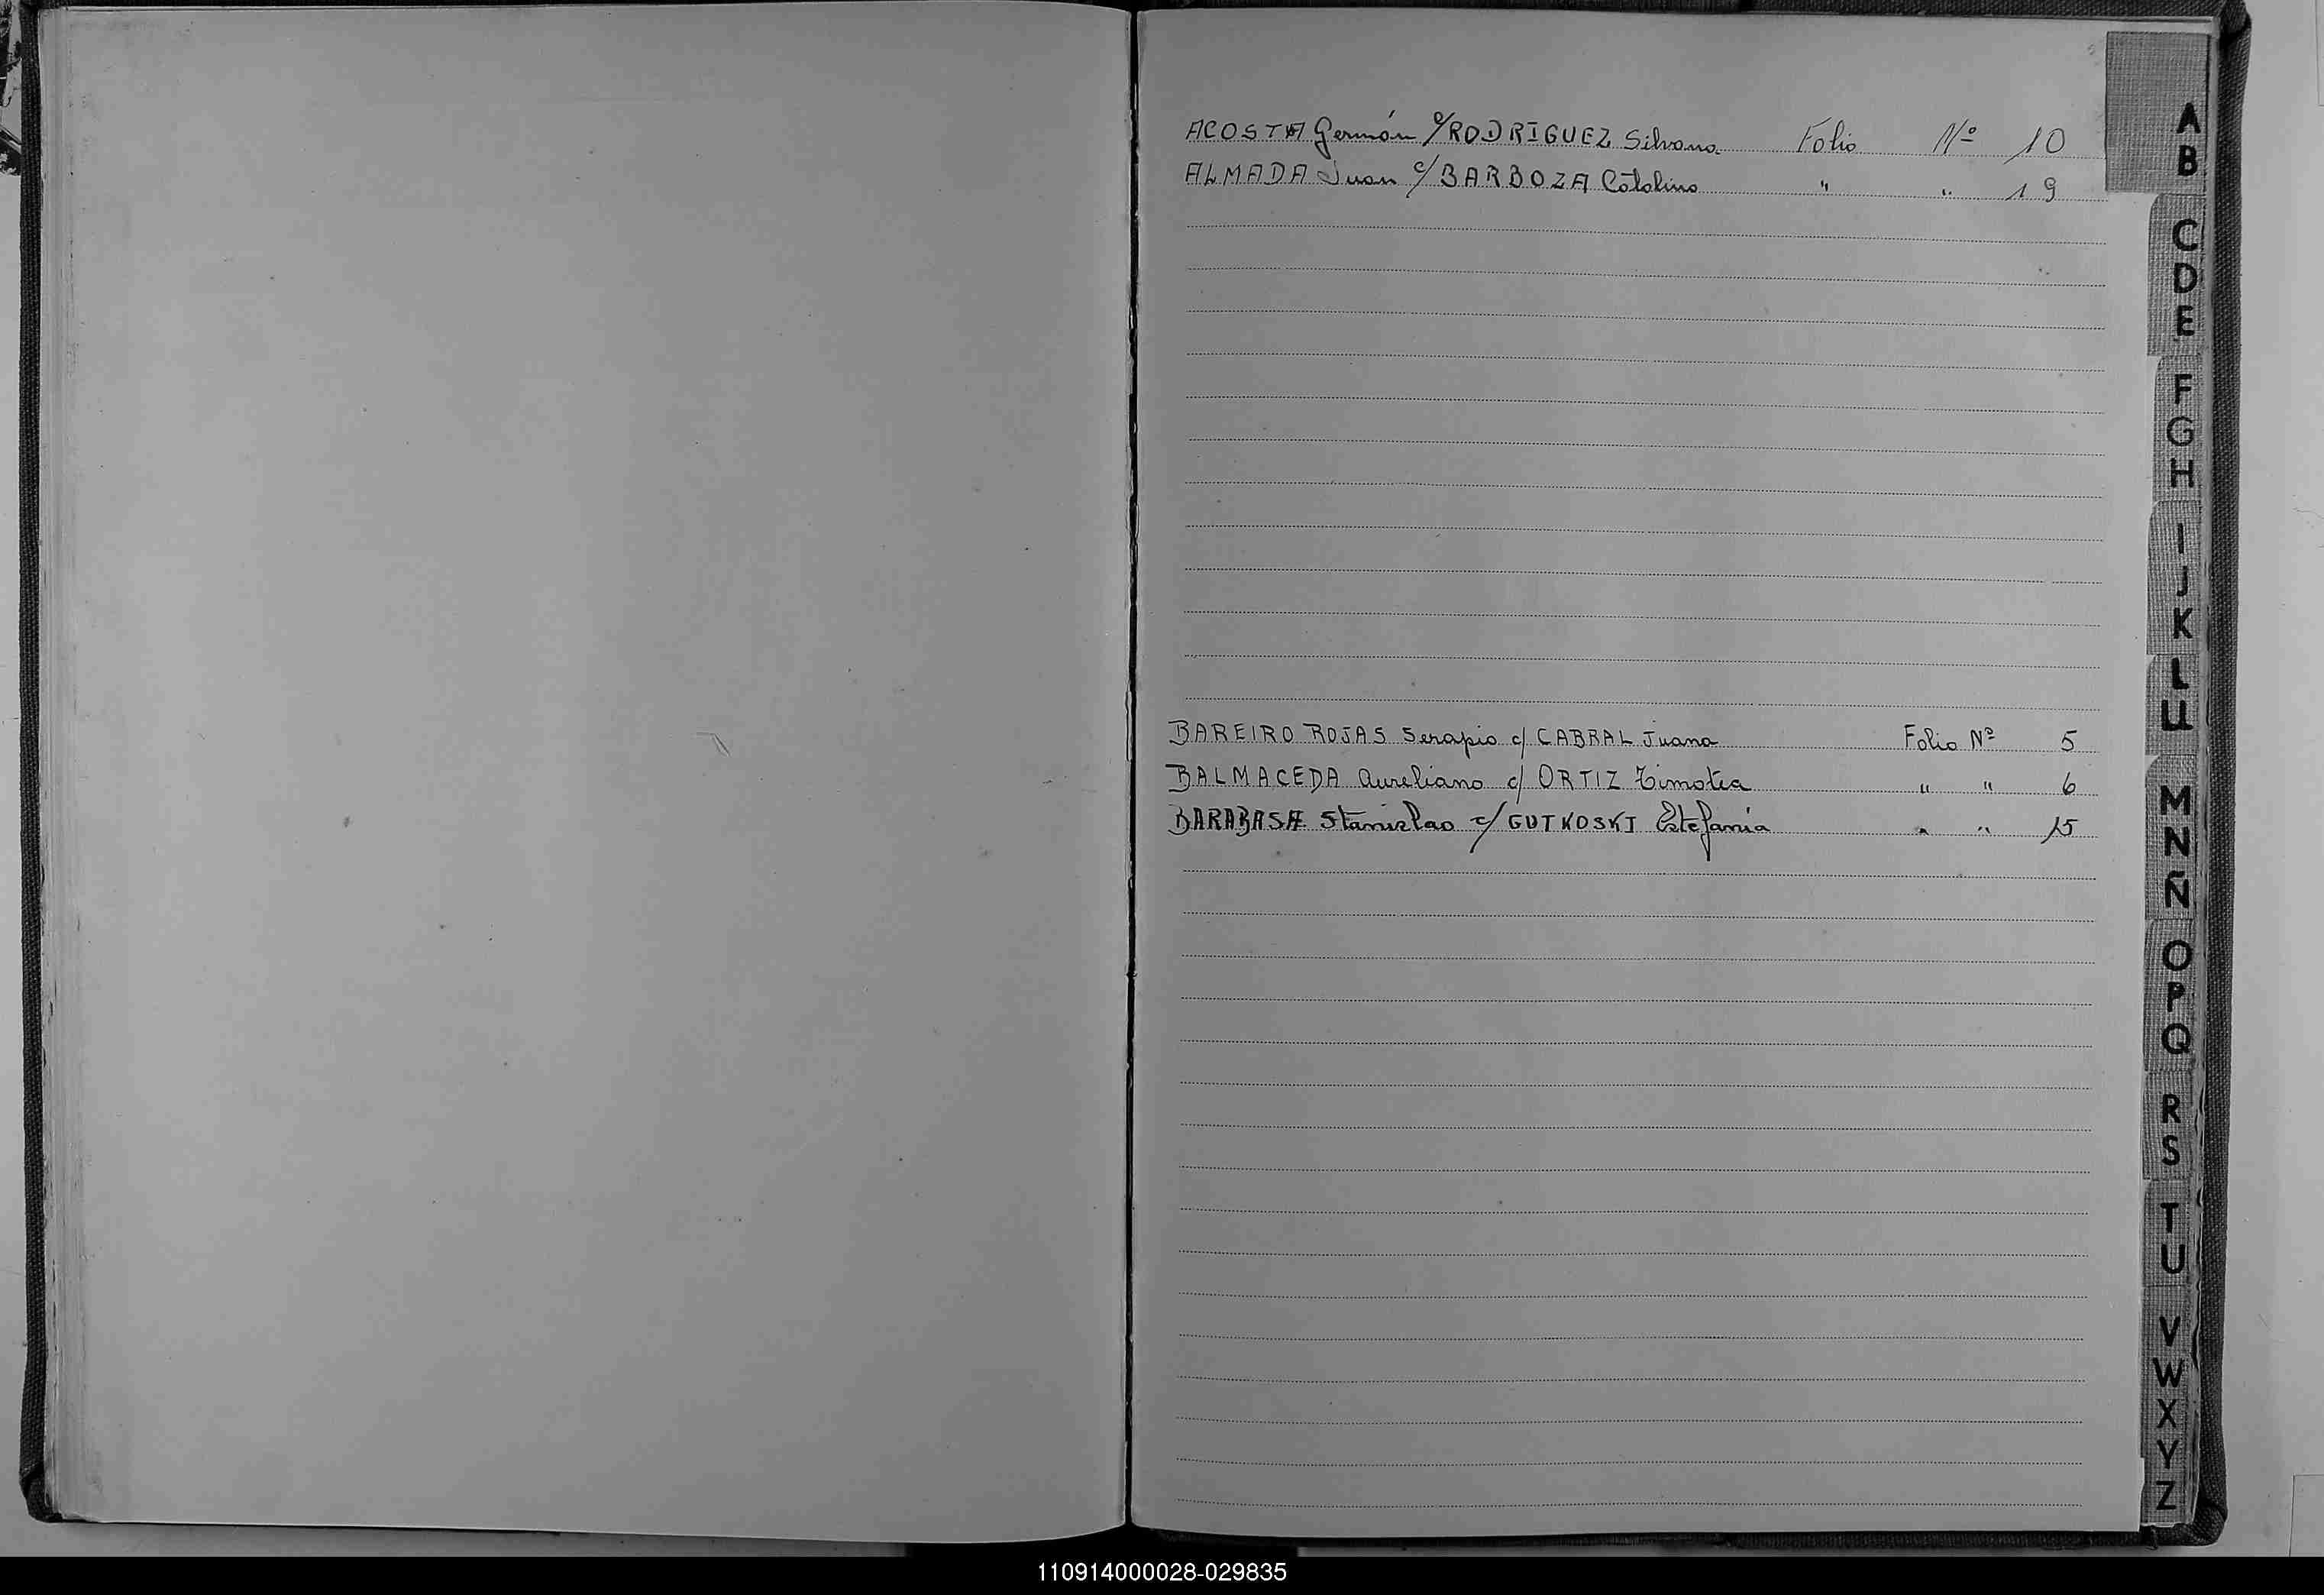 ACOSTA Germán c/ RODRIGUEZ Silvana Folio Nº 10
ALMADA Juan c/ BARBOZA Catalina " " 19
BAREIRO ROJAS Serapio c/ CABRAL Juana Folio Nº 5
BALMACEDA Aureliano c/ ORTIZ Timotea " " 6
BARABASH Stanislao c/ GUTKOSKI Estefania " " 15
A
B
C
D
E
F
G
H
I
J
K
L
LL
M
N
Ñ
O
P
Q
R
S
T
U
V
W
X
Y
Z
110914000028-029835